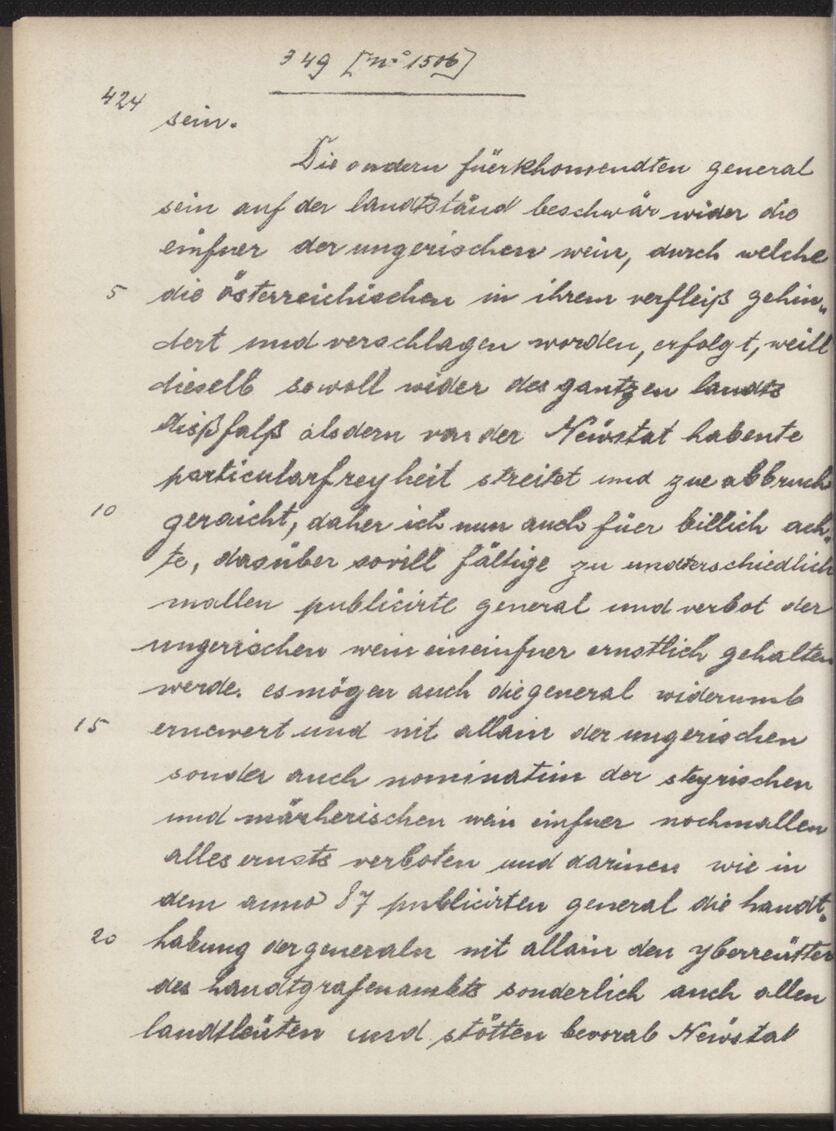 349 [no 1506]
424
sein.
Die andern fürkhomendten general
sein auf der landtständ beschwär wider die
einfuer der ungerischen wein, durch welche
5 die österreichischen in ihrem verfleiß gehin„
dert und verschlagen worden, erfolgt, weill
dieselb sowoll wider des gantzen landts
dißfalß als dern von der Neüstat habente
particularfreyheit streitet und zue abbruch
10 geraicht, daher ich nun auch füer billich ach„
te, darüber sovill fältige zu undterschiedlich
mallen publicirte general und verbot der
ungerischen wein eineinfuer ernstlich gehalten
werde. es mögen auch die general widerumb
15 ernewert und nit allain der ungerischen
sonder auch nominatim der steyrischen
und märherischen wein einfuer nochmallen
alles ernsts verboten und darinen wie in
dem anno 87 publicirten general die handt„
20 habung der generaln nit allain den yberreütter
des handtgrafenambts sonderlich auch allen
landtleüten und stötten bevorab Neüstat